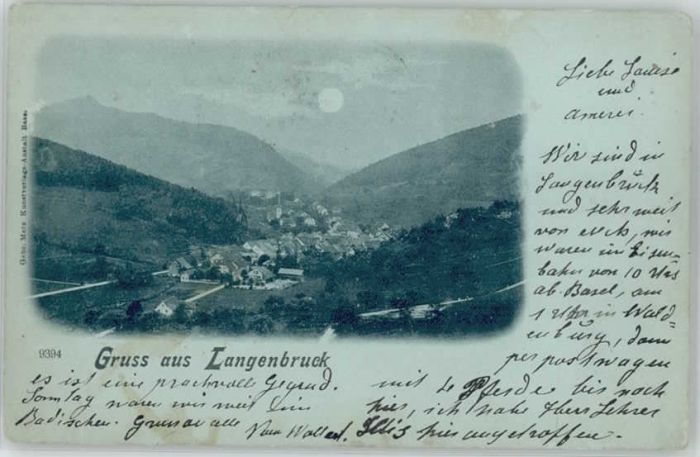 Liebe Louise
und
Wir sind in
Langenbruck
und sehr weit
von euch, wir
waren in Eisen-
bahn von 10 Uhr
ab Basel, um
1 Uhr in Wald-
enburg, dann
per postwagen
mit 4 Pferde bis noch
hier, ich habe Herr Lehrer
hier angetroffen.
Gebr. Metz Kunstverlags-Anstalt Basel
9394
Gruss aus Langenbruck
es ist eine prachtvolle Gegend.
Sonntag waren wir weit im
Badischen. Gruss an alle